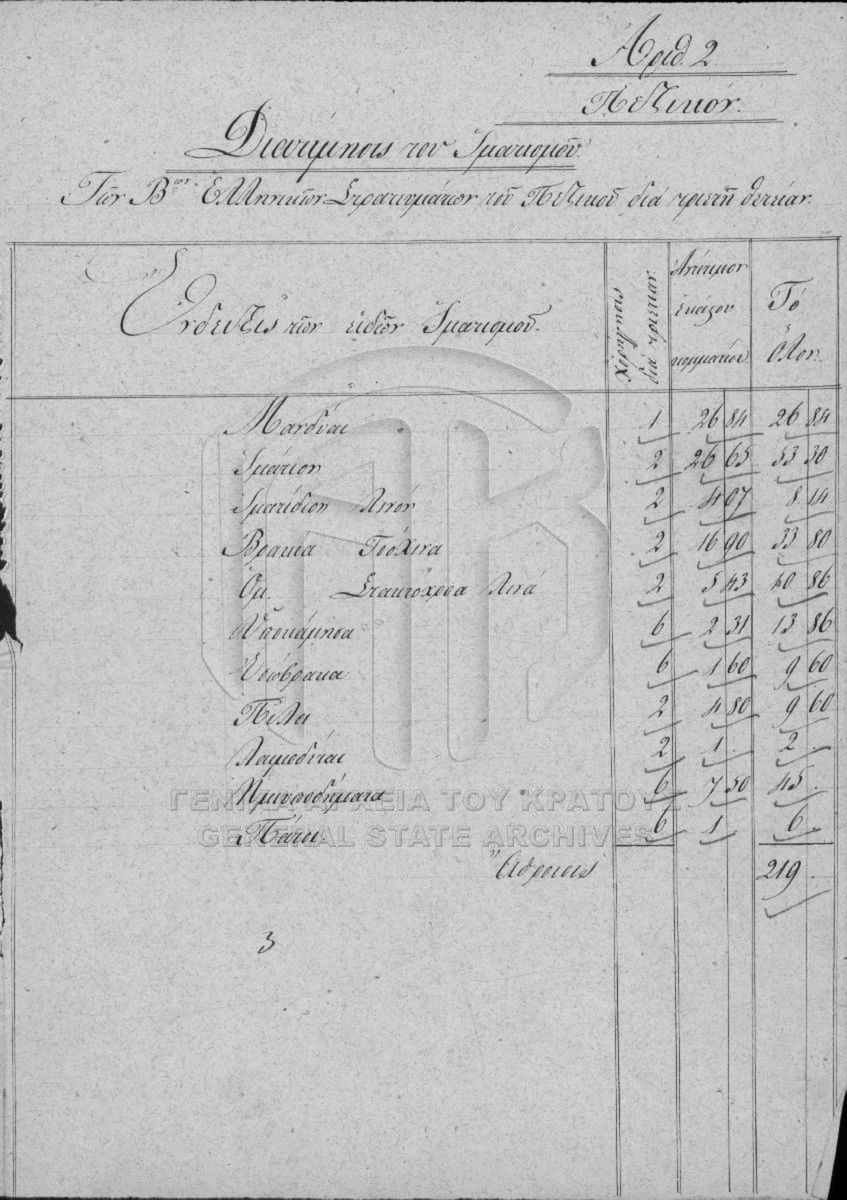 Ἀριθ. 2.
Πεζικόν.
Διατίμησις του Ἱματισμοῦ.
Τῶν Β<sup>ῶν</sup> Ἑλληνικῶν Στρατευμάτων τοῦ Πεζικοῦ διά τριετῆ θητείαν.
Ἔνδειξις τῶν εἰδῶν Ἱματισμοῦ.
Χορήγησις διά τριετίαν
Ἀντίτιμον ἑκάστου κομματίου
Τό ὅλον.
Μανδύαι 1 26 84 26 84
Ἱμάτιον 2 26 65 53 30
Ἱματίδιον λινόν 2 4 07 8 14
Βρακία Τσόχινα 2 16 90 33 80
Ὁμ. Στακτόχροα λινά 2 5 43 10 86
Ὑποκάμισα 6 2 31 13 86
Ἐσώβρακα 6 1 60 9 60
Πῖλοι 2 4 80 9 60
Λαιμοδέται 2 1 2
Ἡμιυποδήματα 6 7 50 45
Πάτοι 6 1 6
Ἄθροισις 219
3
ΓΕΝΙΚΑ ΑΡΧΕΙΑ ΤΟΥ ΚΡΑΤΟΥΣ
GENERAL STATE ARCHIVES